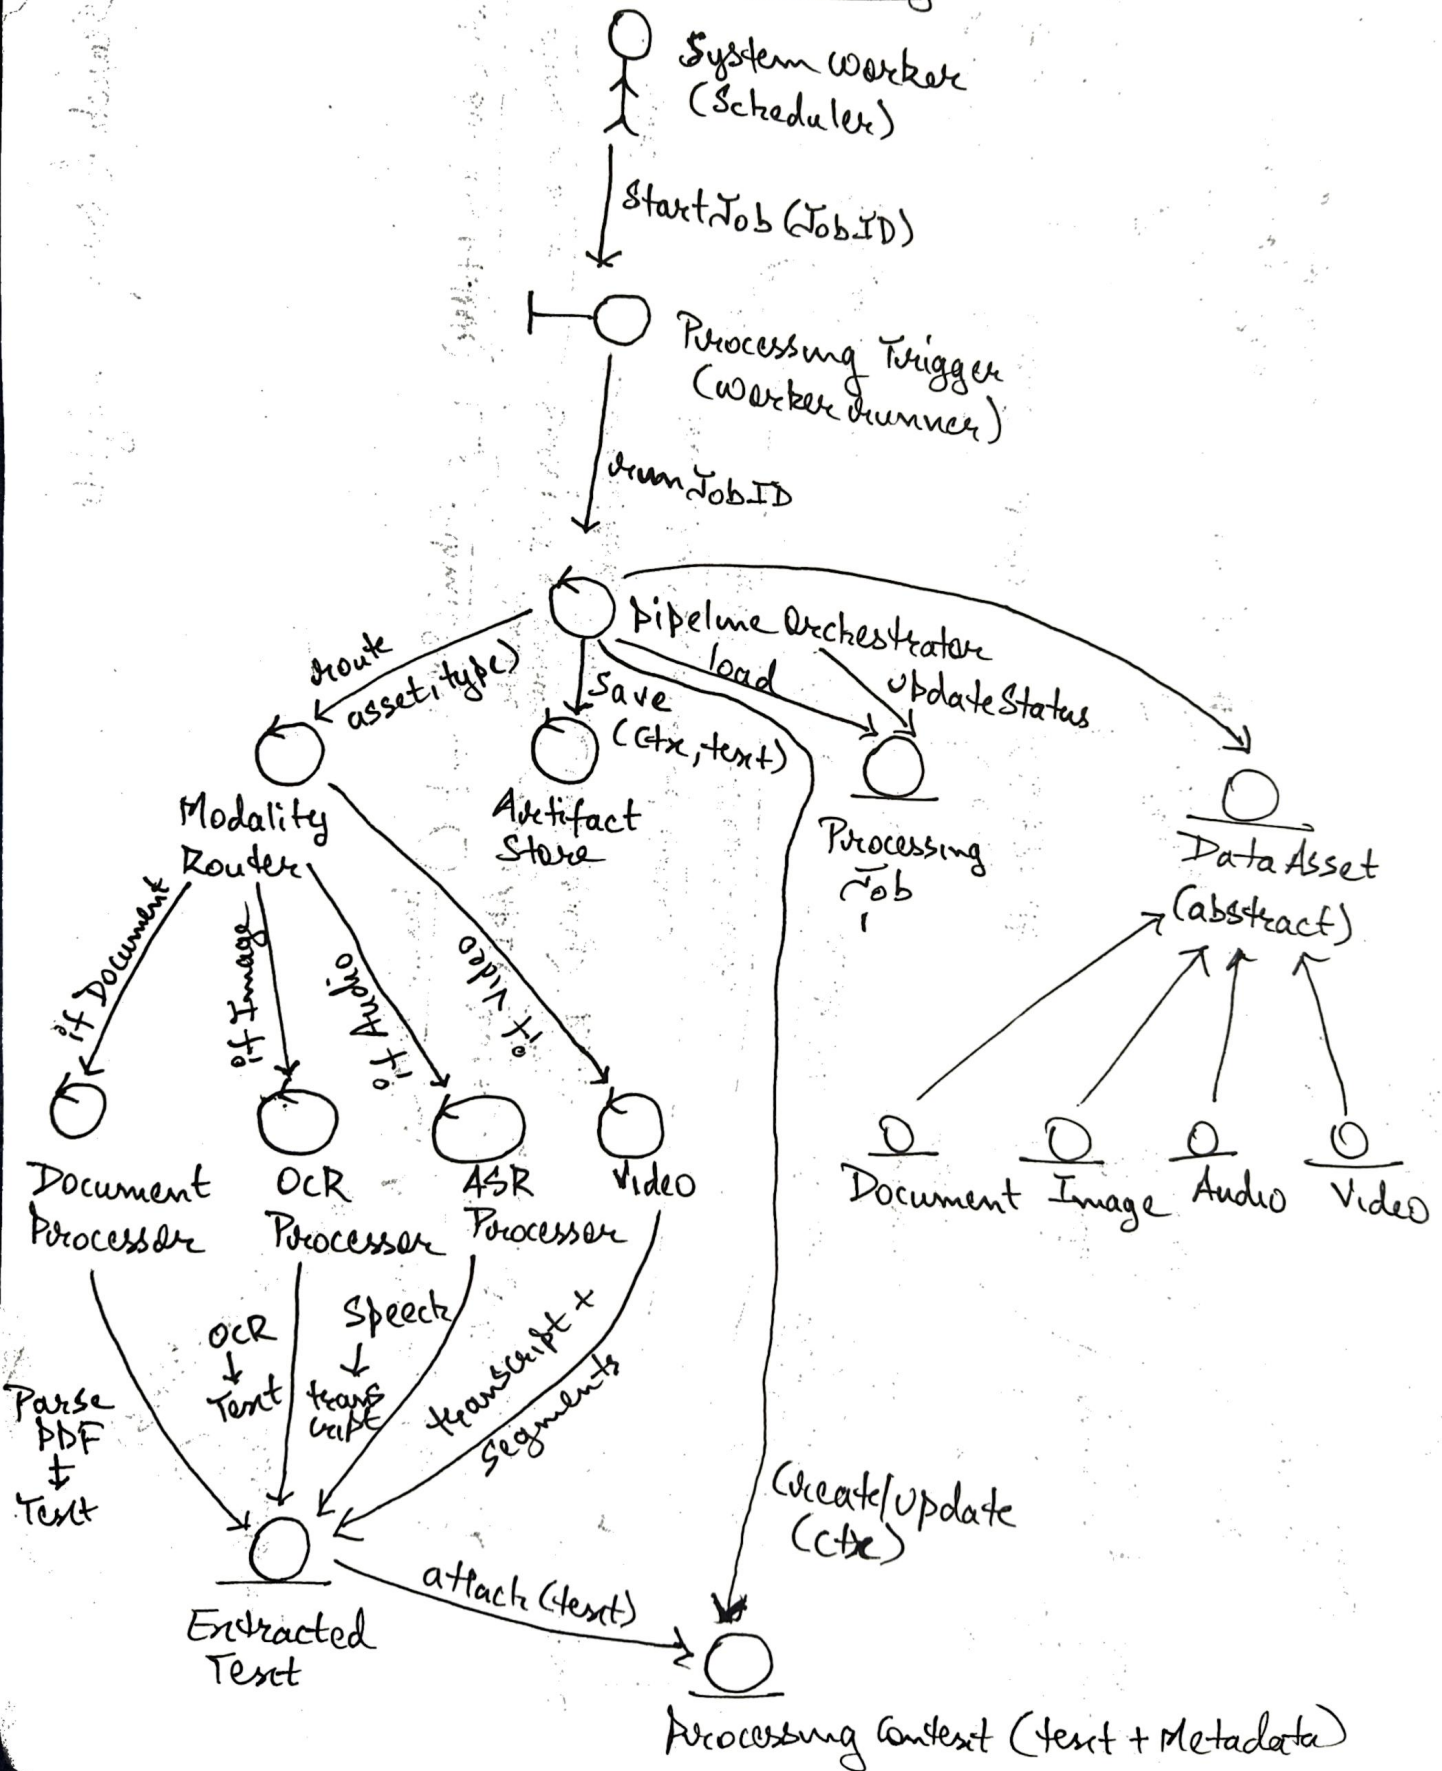 System worker
(Scheduler)
StartJob (JobID)
Processing Trigger
(worker runner)
run JobID
Pipeline Orchestrator
route
asset, type)
load
updateStatus
Save
(ctx, text)
Modality
Router
Artifact
Store
Processing
Job
DataAsset
(abstract)
if Document
if Image
if Audio
if Video
Document
Processor
OCR
Processor
ASR
Processor
Video
Document
Image
Audio
Video
Parse
PDF
↓
Text
OCR
↓
Text
Speech
↓
trans
cript
transcript +
segments
Create/update
(ctx)
attach (text)
Extracted
Text
Processing Context (text + Metadata)